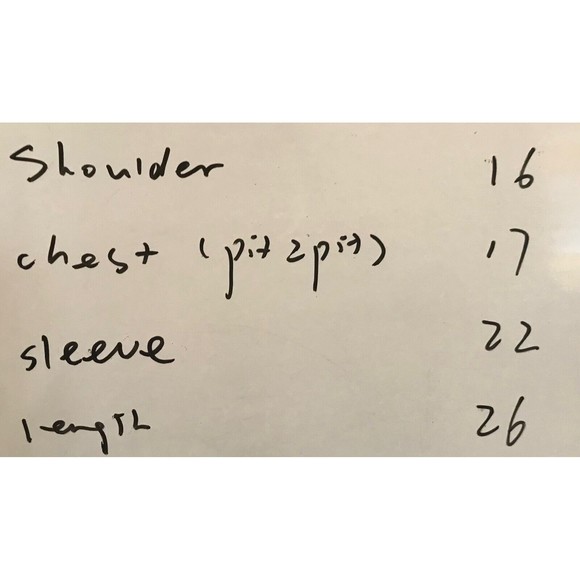 Shoulder 16
chest (pit2pit) 17
sleeve 22
length 26